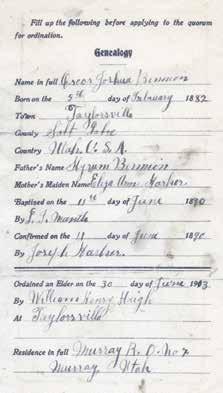 Fill up the following before applying to the quorum
for ordination.
Genealogy
Name in full Oscar Joshua Bennion
Born on the 5th day of February 1882
Town Taylorsville
County Salt Lake
Country Utah U.S.A.
Father's Name Hyrum Bennion
Mother's Maiden Name Eliza Ann Harker
Baptised on the 11th day of June 1890
By E. T.
Confirmed on the 11 day of June 1890
By Joseph Harker.
Ordained an Elder on the 30 day of June 1903
By William Henry Haigh
At Taylorsville
Residence in full Murray R. D. No 7
Murray Utah